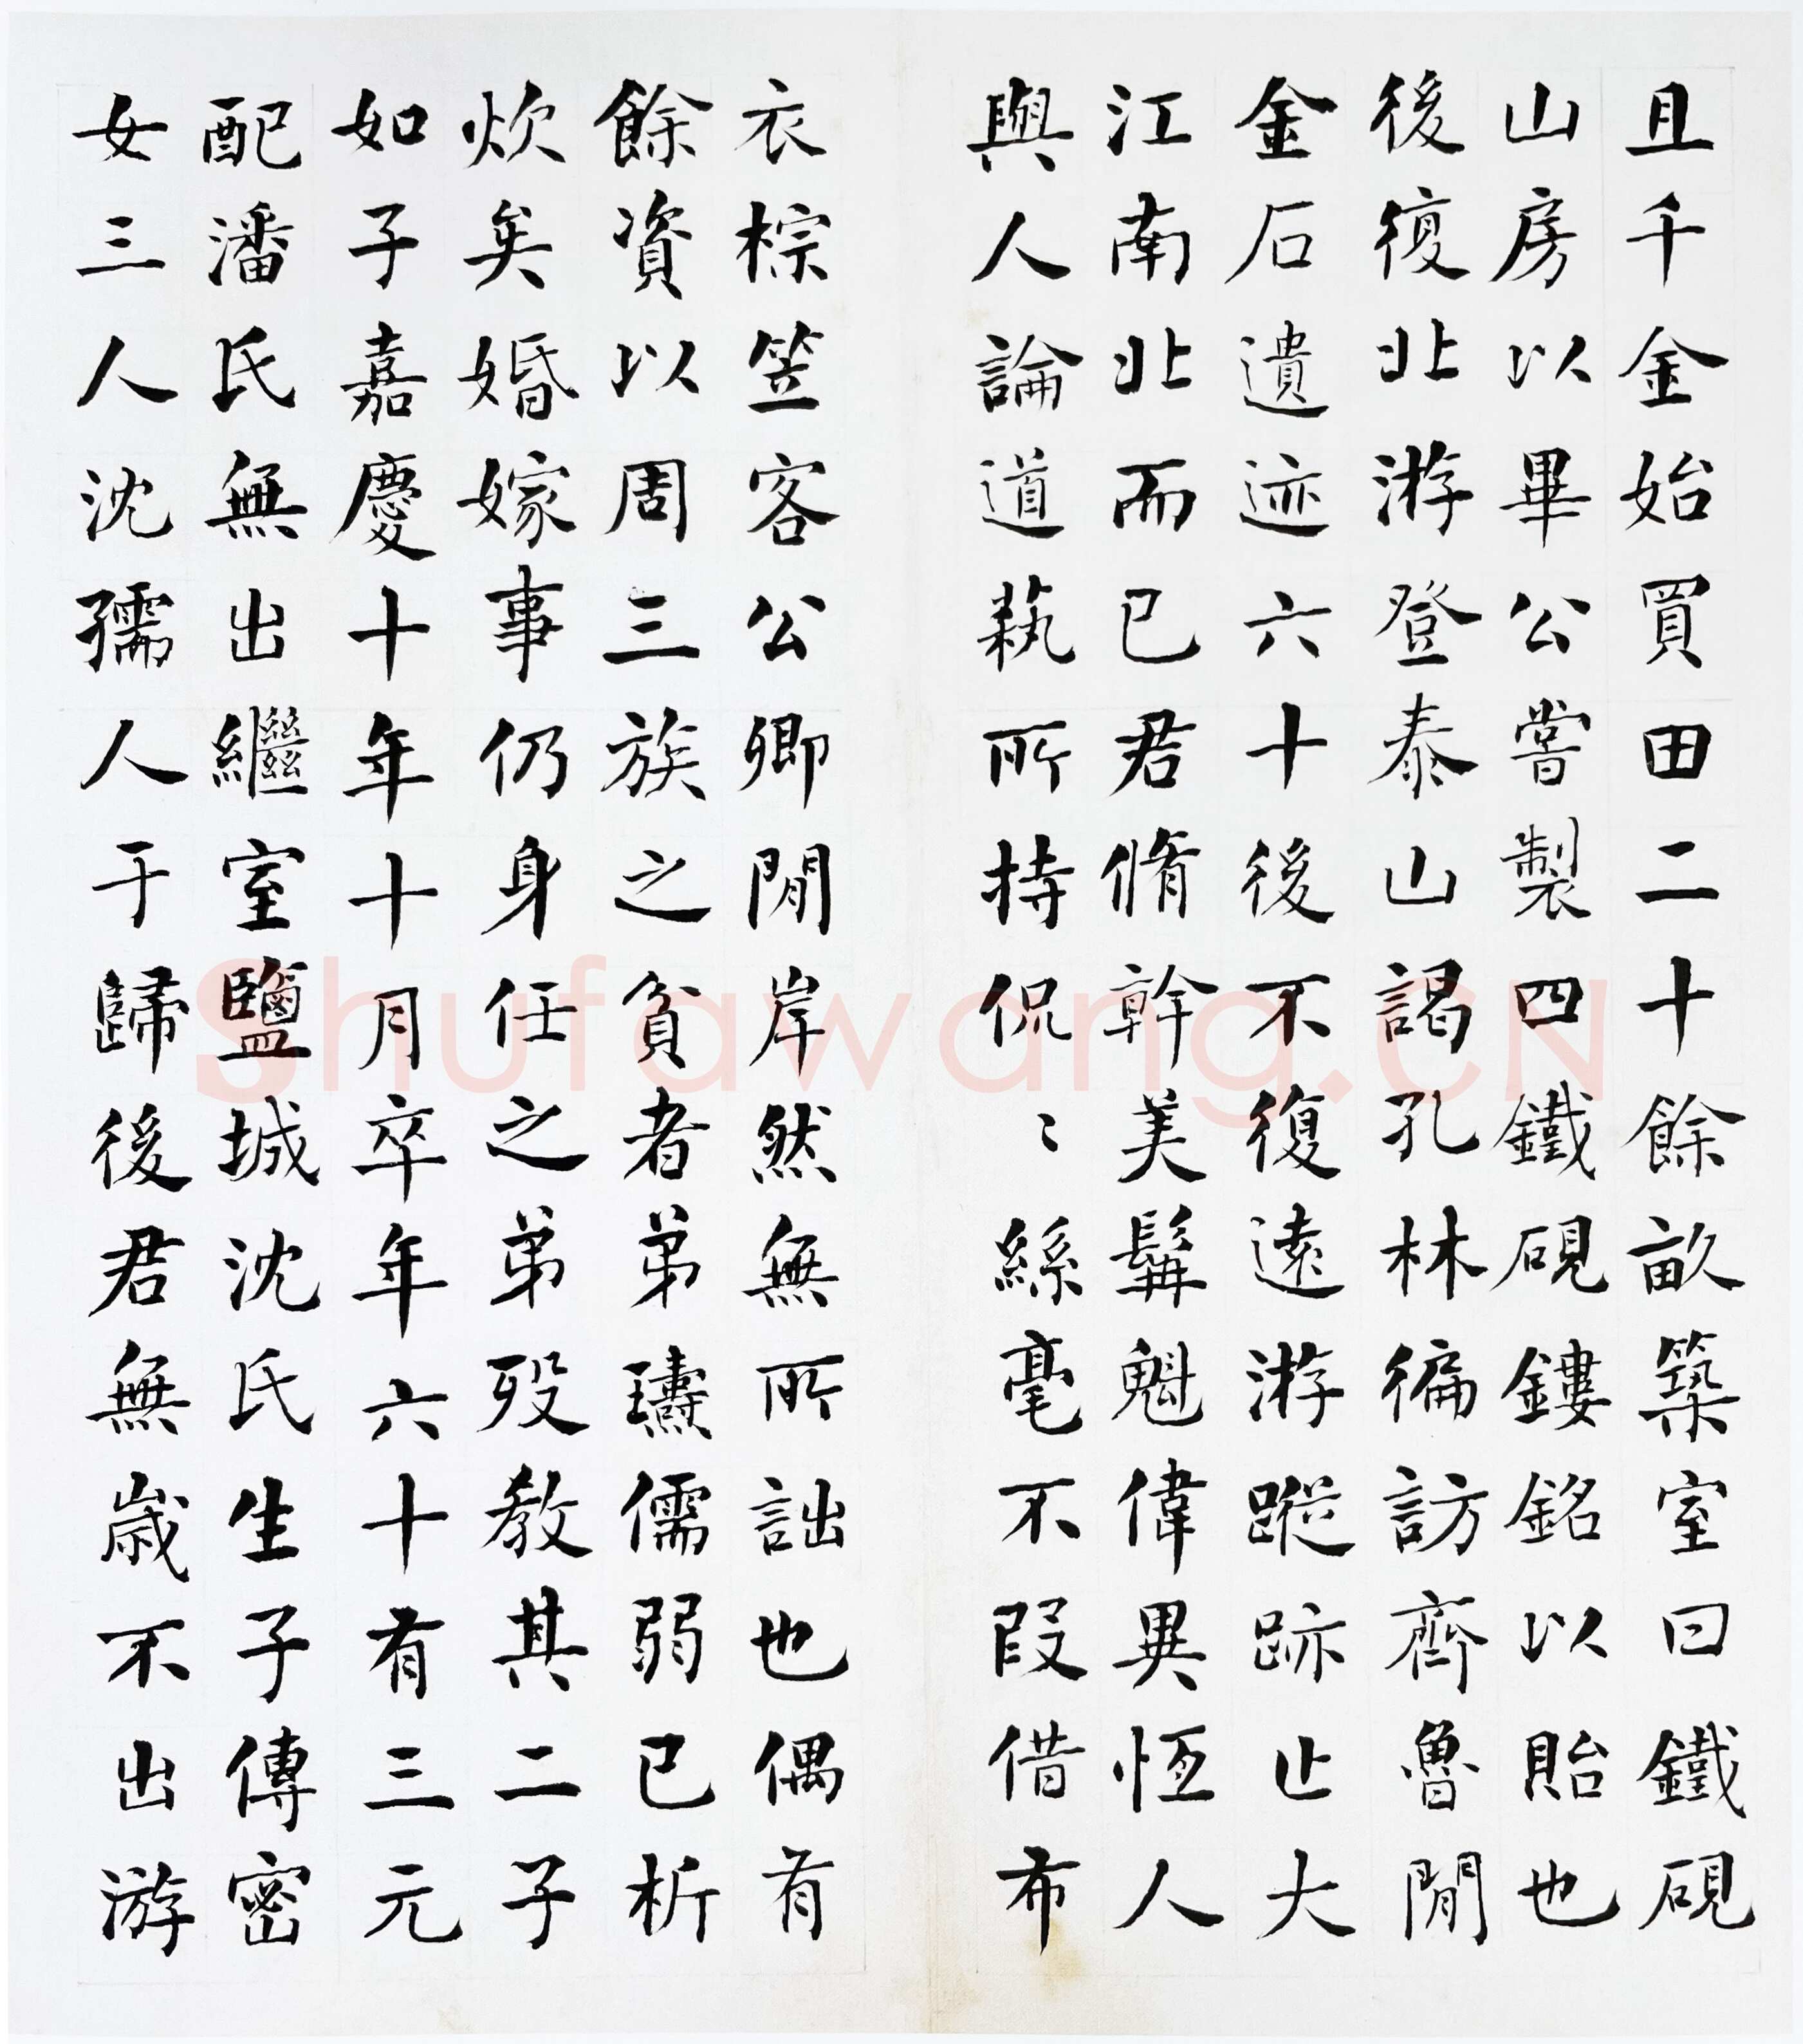 且千金始買田二十餘畝築室曰鐵硯
山房以畢公嘗製四鐵硯鏤銘以貽也
後復北游登泰山謁孔林徧訪齊魯閒
金石遺迹六十後不復遠游蹤跡止大
江南北而已君脩幹美髯魁偉異恆人
與人論道蓺所持侃〻絲毫不叚借布
衣棕笠客公卿閒岸然無所詘也偶有
餘資以周三族之貧者弟𤩴儒弱已析
炊矣婚嫁事仍身任之弟歿教其二子
如子嘉慶十年十月卒年六十有三元
配潘氏無出繼室鹽城沈氏生子傳密
女三人沈孺人于歸後君無歲不出游
Shufawang.CN